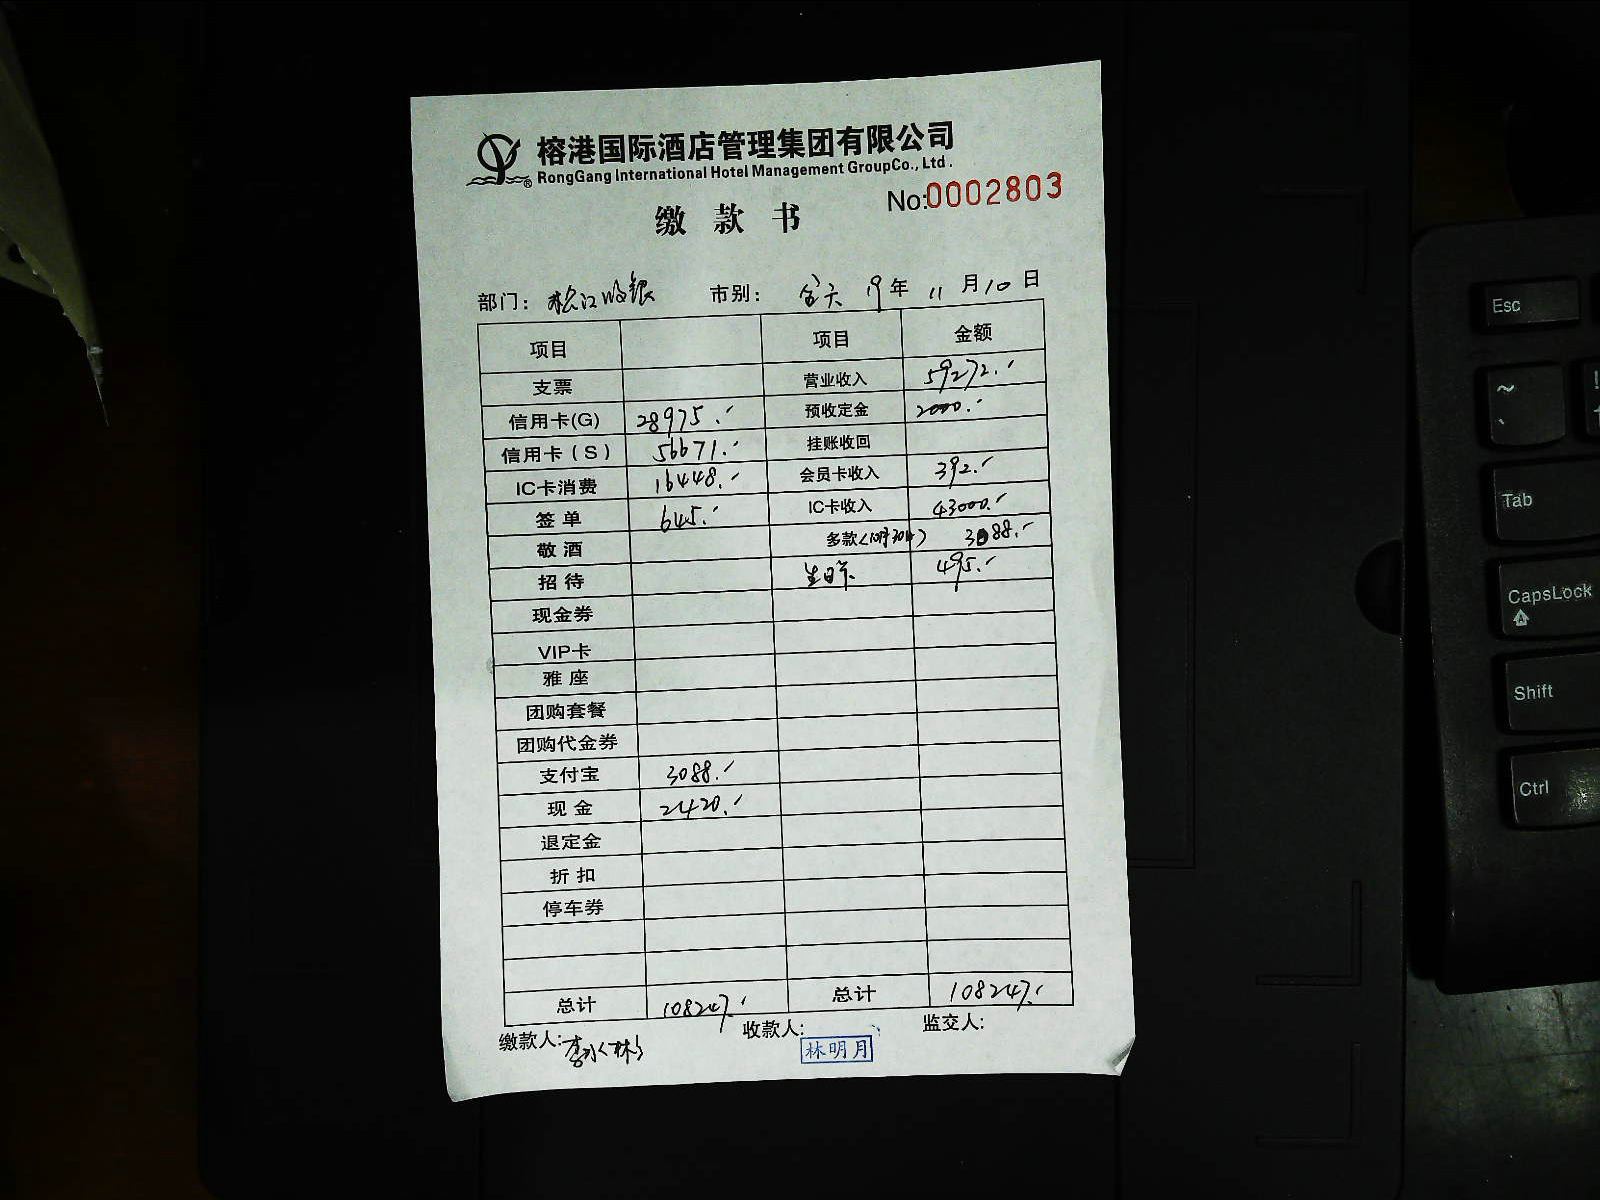 榕港国际酒店管理集团有限公司
®RongGang International Hotel Management GroupCo., Ltd.
No:0002803
缴款书
部门：松江收银 市别：全天 19年 11月10日
项目 项目 金额
支票 营业收入 59272.-
信用卡(G) 28975.- 预收定金 2000.-
信用卡(S) 56671.- 挂账收回
IC卡消费 16448.- 会员卡收入 392.-
签单 645.- IC卡收入 43000.-
敬酒 多款(10月30日) 3088.-
招待 495.-
现金券
VIP卡
雅座
团购套餐
团购代金券
支付宝 3088.-
现金 2420.-
退定金
折扣
停车券
总计 108247.- 总计 108247.-
缴款人: 收款人: 监交人:
林明月
Esc
~
!
Tab
CapsLock
Shift
Ctrl